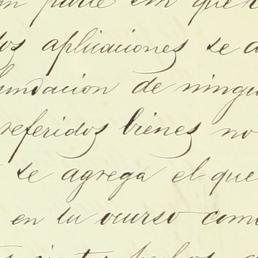 parte en que
aplicaciones se
fundacion de ningu
referidos bienes no
se agrega el que
en tu ocurso com